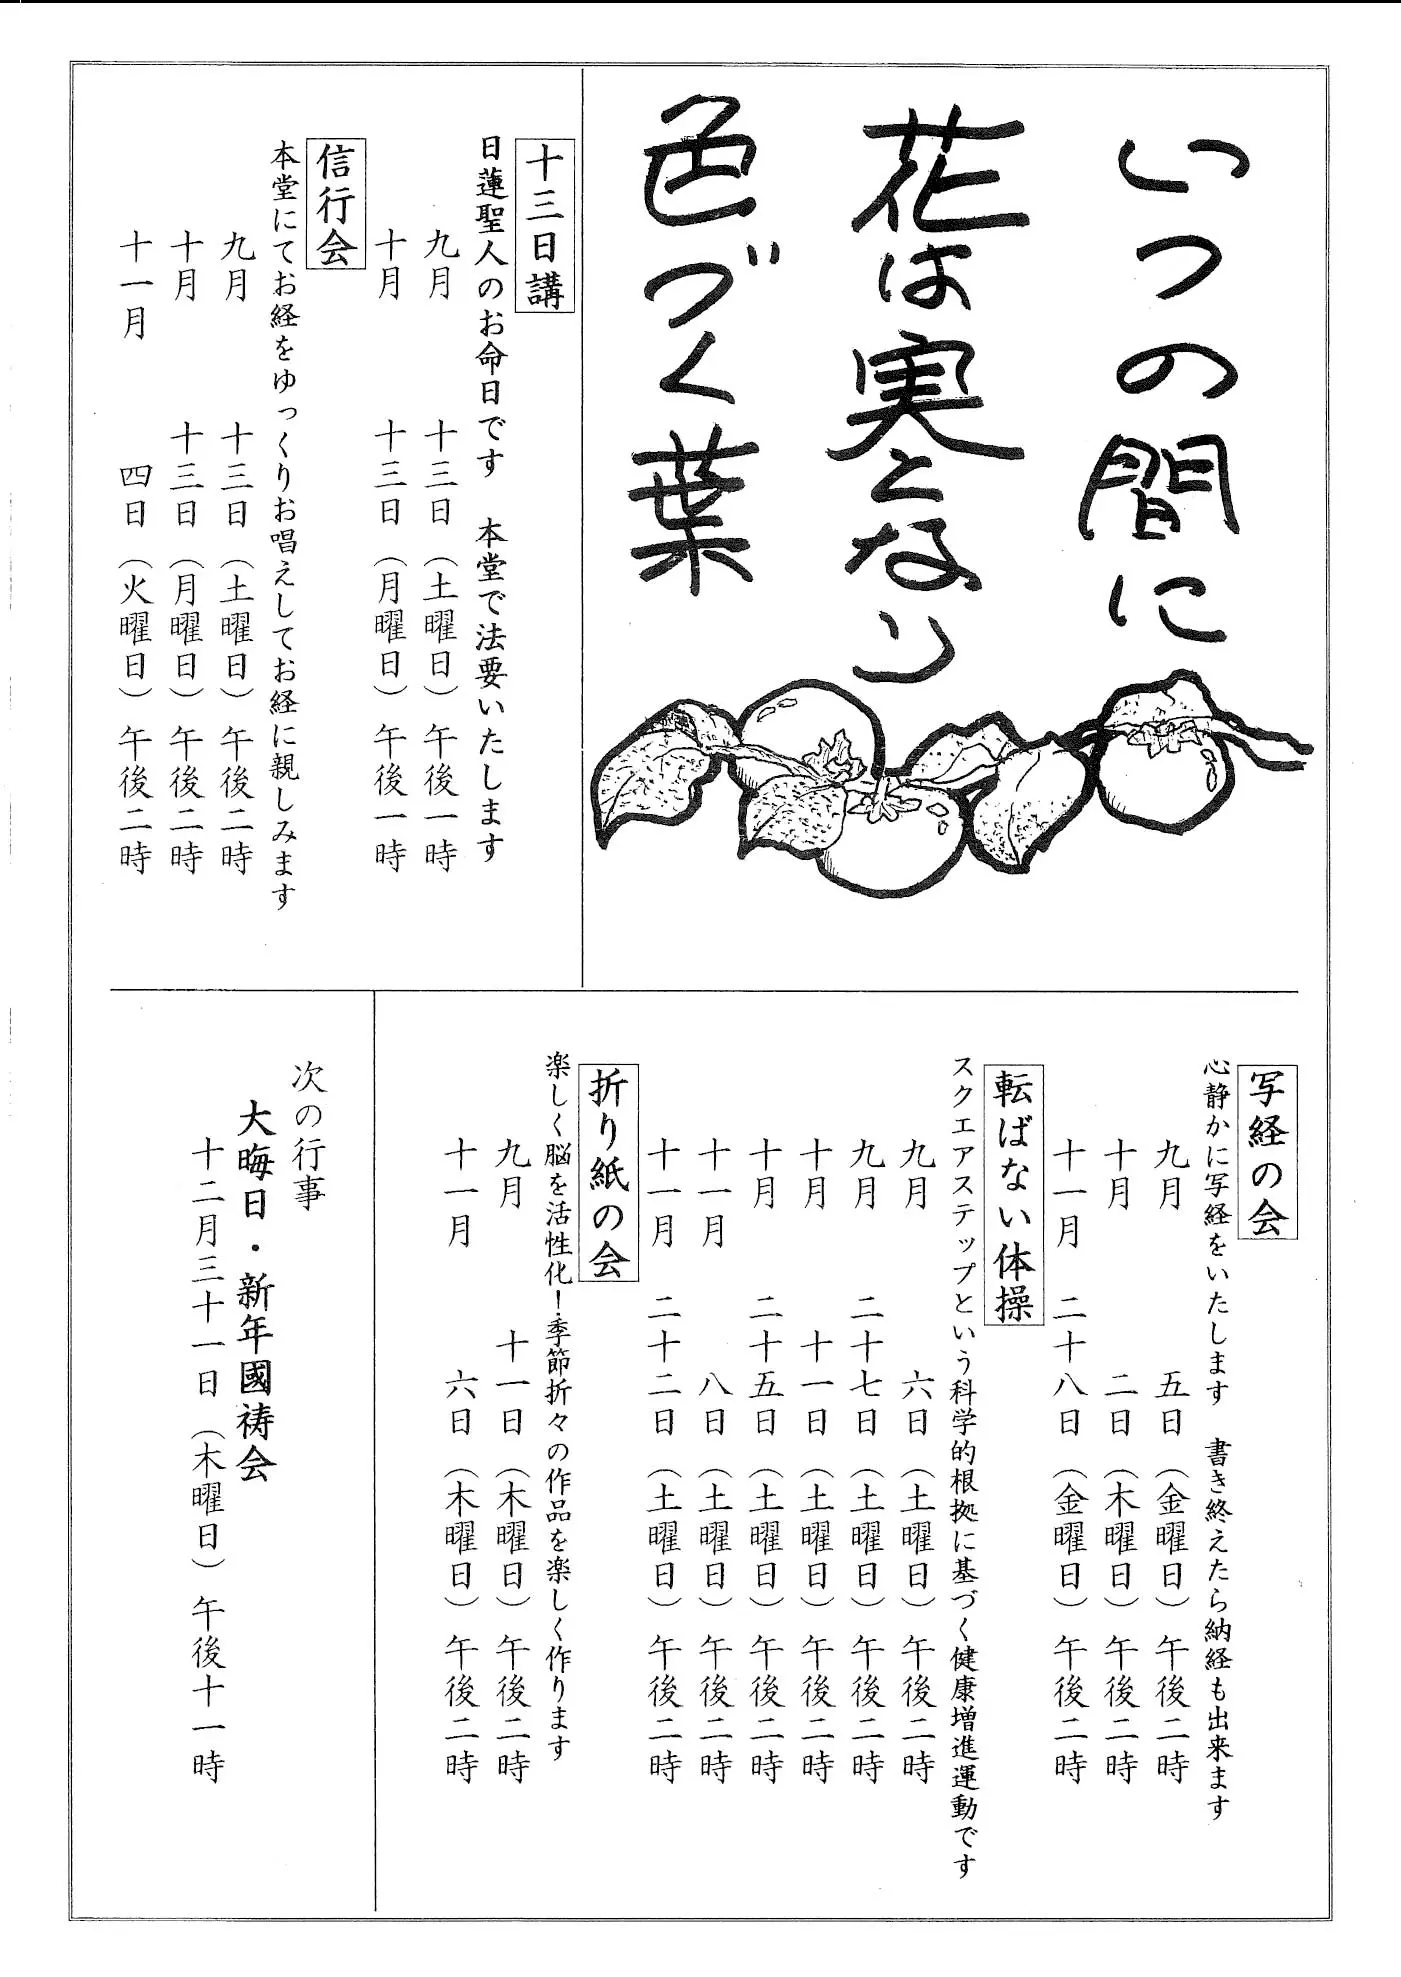 いつの間に
花は実となり
色づく葉
十三日講
日蓮聖人のお命日です　本堂で法要いたします
九月　十三日（土曜日）午後一時
十月　十三日（月曜日）午後一時
信行会
本堂にてお経をゆっくりお唱えしてお経に親しみます
九月　十三日（土曜日）午後二時
十月　十三日（月曜日）午後二時
十一月　四日（火曜日）午後二時
写経の会
心静かに写経をいたします　書き終えたら納経も出来ます
九月　五日（金曜日）午後二時
十月　二日（木曜日）午後二時
十一月　二十八日（金曜日）午後二時
転ばない体操
スクエアステップという科学的根拠に基づく健康増進運動です
九月　六日（土曜日）午後二時
九月　二十七日（土曜日）午後二時
十月　十一日（土曜日）午後二時
十月　二十五日（土曜日）午後二時
十一月　八日（土曜日）午後二時
十一月　二十二日（土曜日）午後二時
折り紙の会
楽しく脳を活性化！季節折々の作品を楽しく作ります
九月　十一日（木曜日）午後二時
十一月　六日（木曜日）午後二時
次の行事
大晦日・新年國祷会
十二月三十一日（木曜日）午後十一時